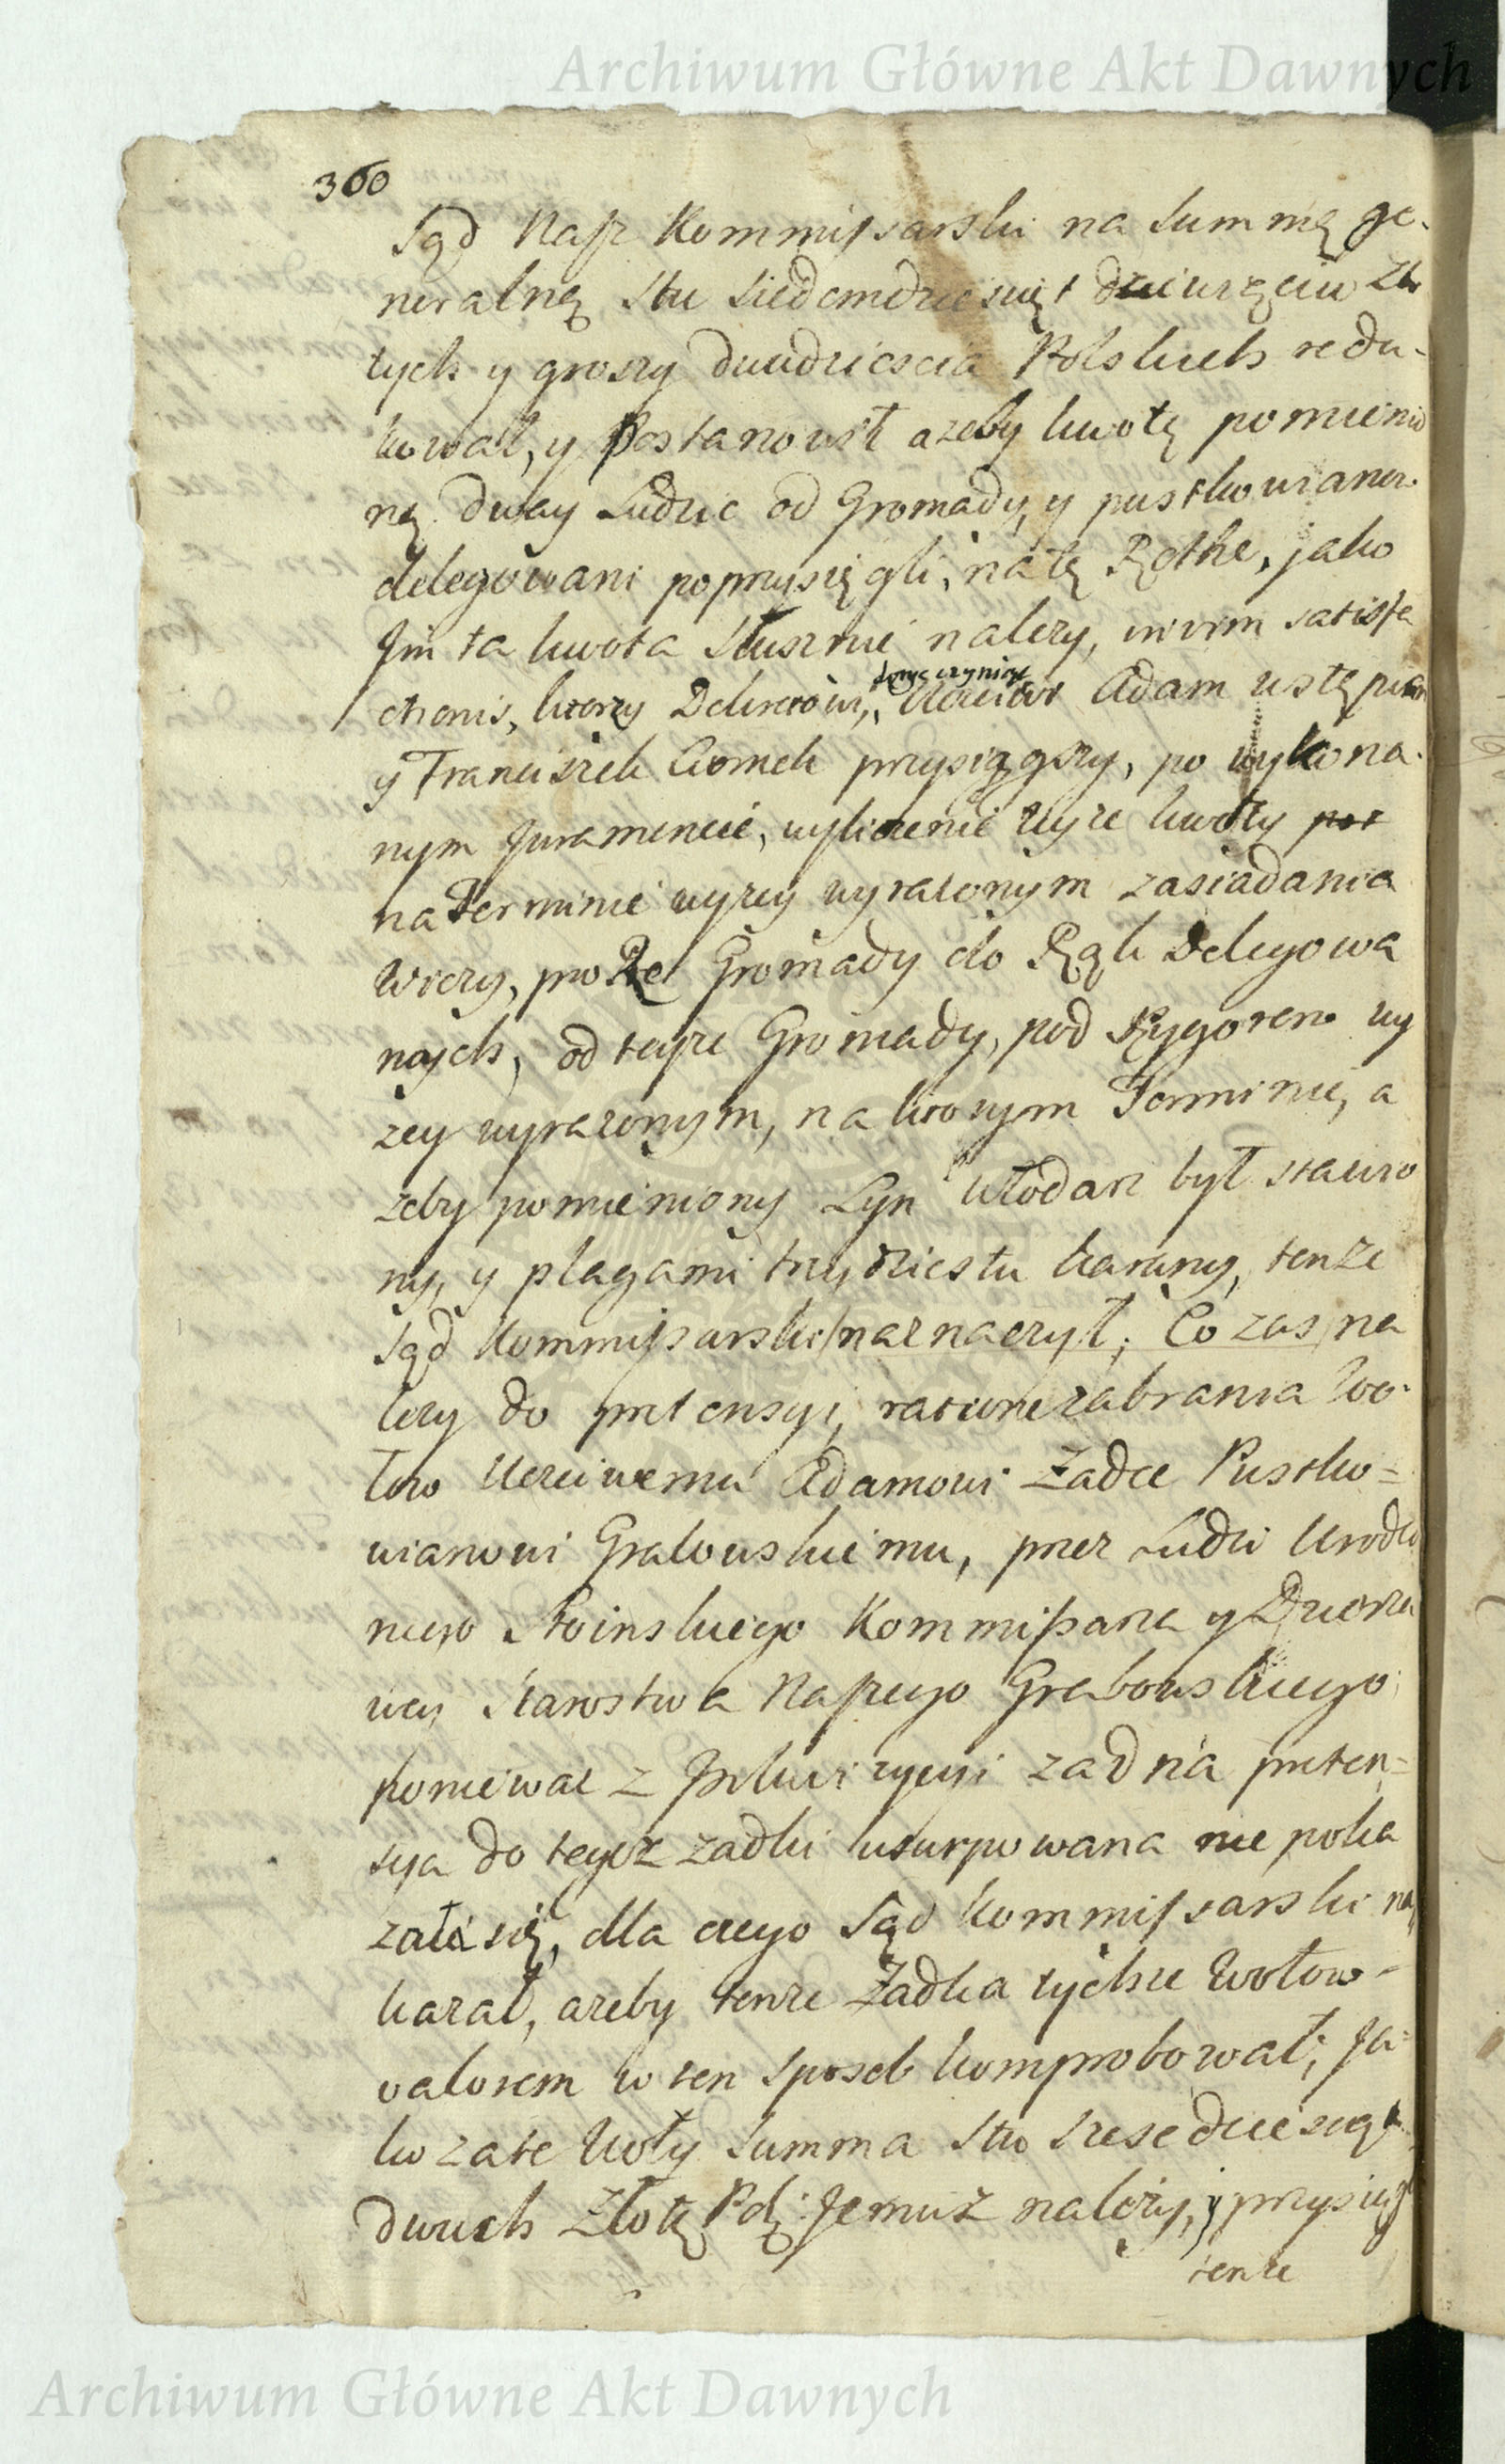 Archiwum Główne Akt Dawnych
360
Sąd Nasz Kommissarski na Summę ge-
neralnę Stu Siedemdziesiąt dziewięciu Zło
tych y groszy dwudziescia Polskich redu-
kował, y Postanowił azeby kwotę pomienio
nę dway Ludzie od Gromady, y pustkowianow
delegowani poprzysięgli, na tę Rothę, jako
Jm ta kwota Słusznie nalezy, in vim satisfa
ctionis, ktorzy Delinkwow,
y Franciszek przysiągszy, po wykona-
nym Juramencie, wyliczenie teyze kwoty
na Terminie wyzey wyrazonym zasiadania
Wiezy, przez Gromady do Rąk Delegowa
nych, od teyze Gromady, pod Rygorem wy
zey wyrazonym, na ktorym Terminie, a
zeby pomieniony Syn Włodarz był stawio
ny, y plagami trzydziestu karany, tenze
Sąd Kommissarski naznaczył; Co zas na
lezy do pretensyi, ratione zabrania Wo-
łow Uczciwemu Adamowi Żadce Pustko=
wianowi Grabowskiemu, przez Ludzi Urodzo
nego Stoinskiego Kommissarza y Dzierza
wcy Starostwa Naszego Grabowskiego
poniewaz z Jnkwizycyi zadna preten=
sya do tegoz Zadki usurpowana nie poka
zała się, dla czego Sąd Kommissarski na
kazał, azeby tenze Żadka tychze Wołow
valorem w ten sposob komprobował; Ja=
ko za te Woły Summa Sto szescdziesiąt
dwuch Złotę Polę: Jemuz nalezy, y przysiągł
tenze
Archiwum Główne Akt Dawnych